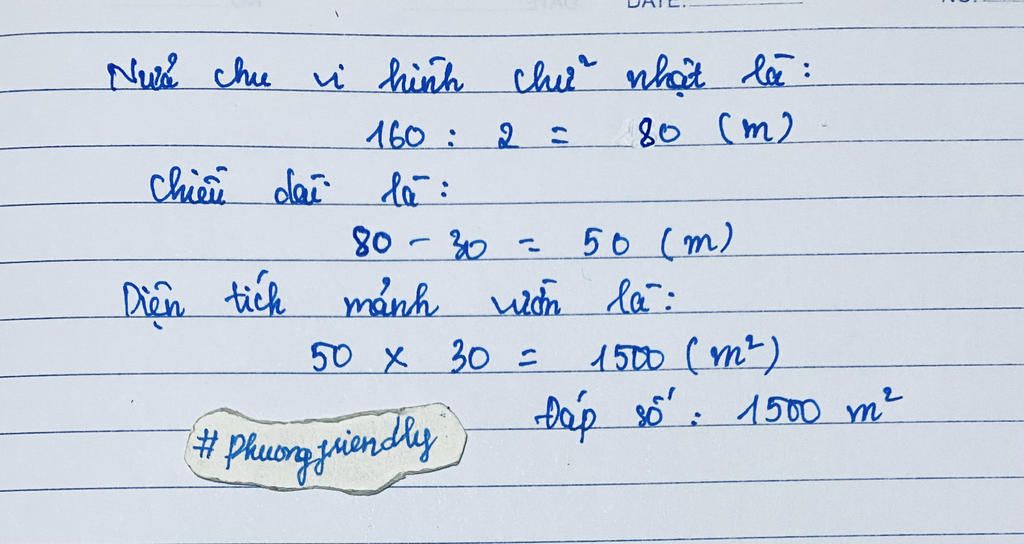 DATE:
Nửa chu vi hình chữ nhật là:
160 : 2 = 80 (m)
Chiều dài là:
80 - 30 = 50 (m)
Diện tích mảnh vườn là:
50 x 30 = 1500 (m²)
Đáp số: 1500 m²
#phuongfriendly